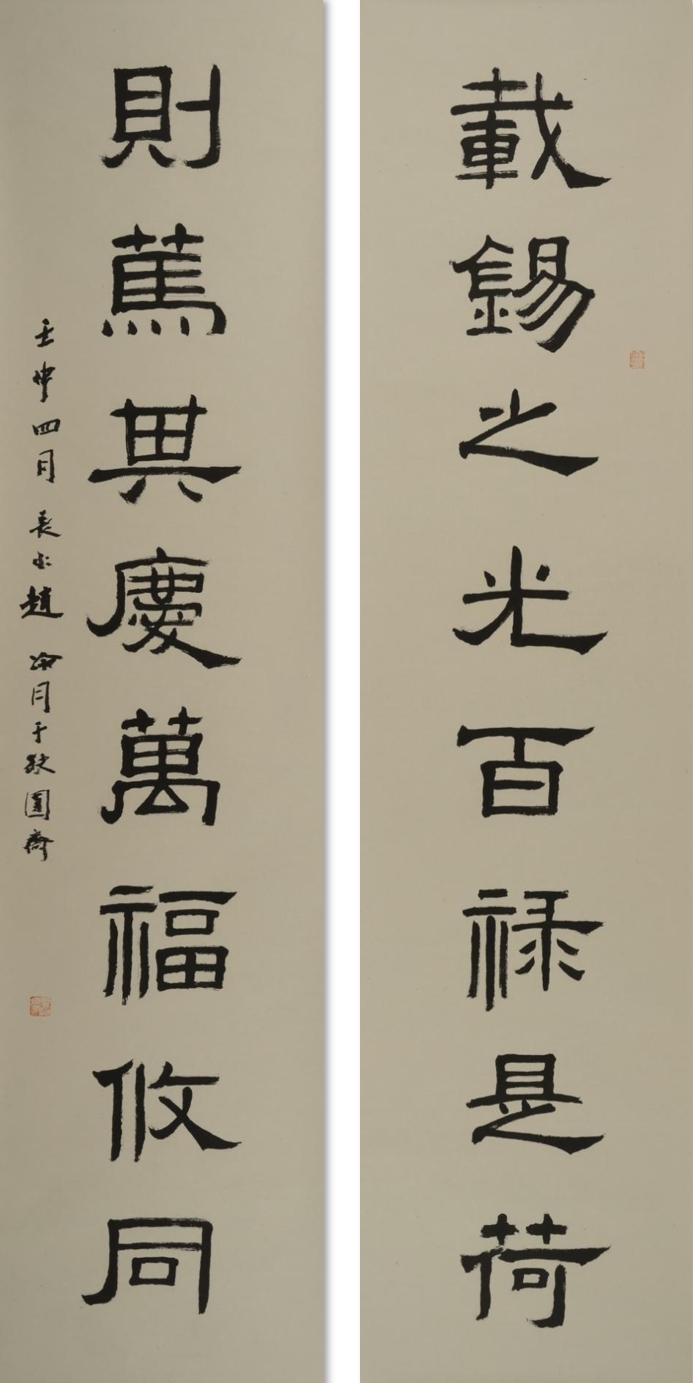 載錫之光百禄是荷
則篤其慶萬福攸同
壬申四月長水趙冷月于缺圓齋